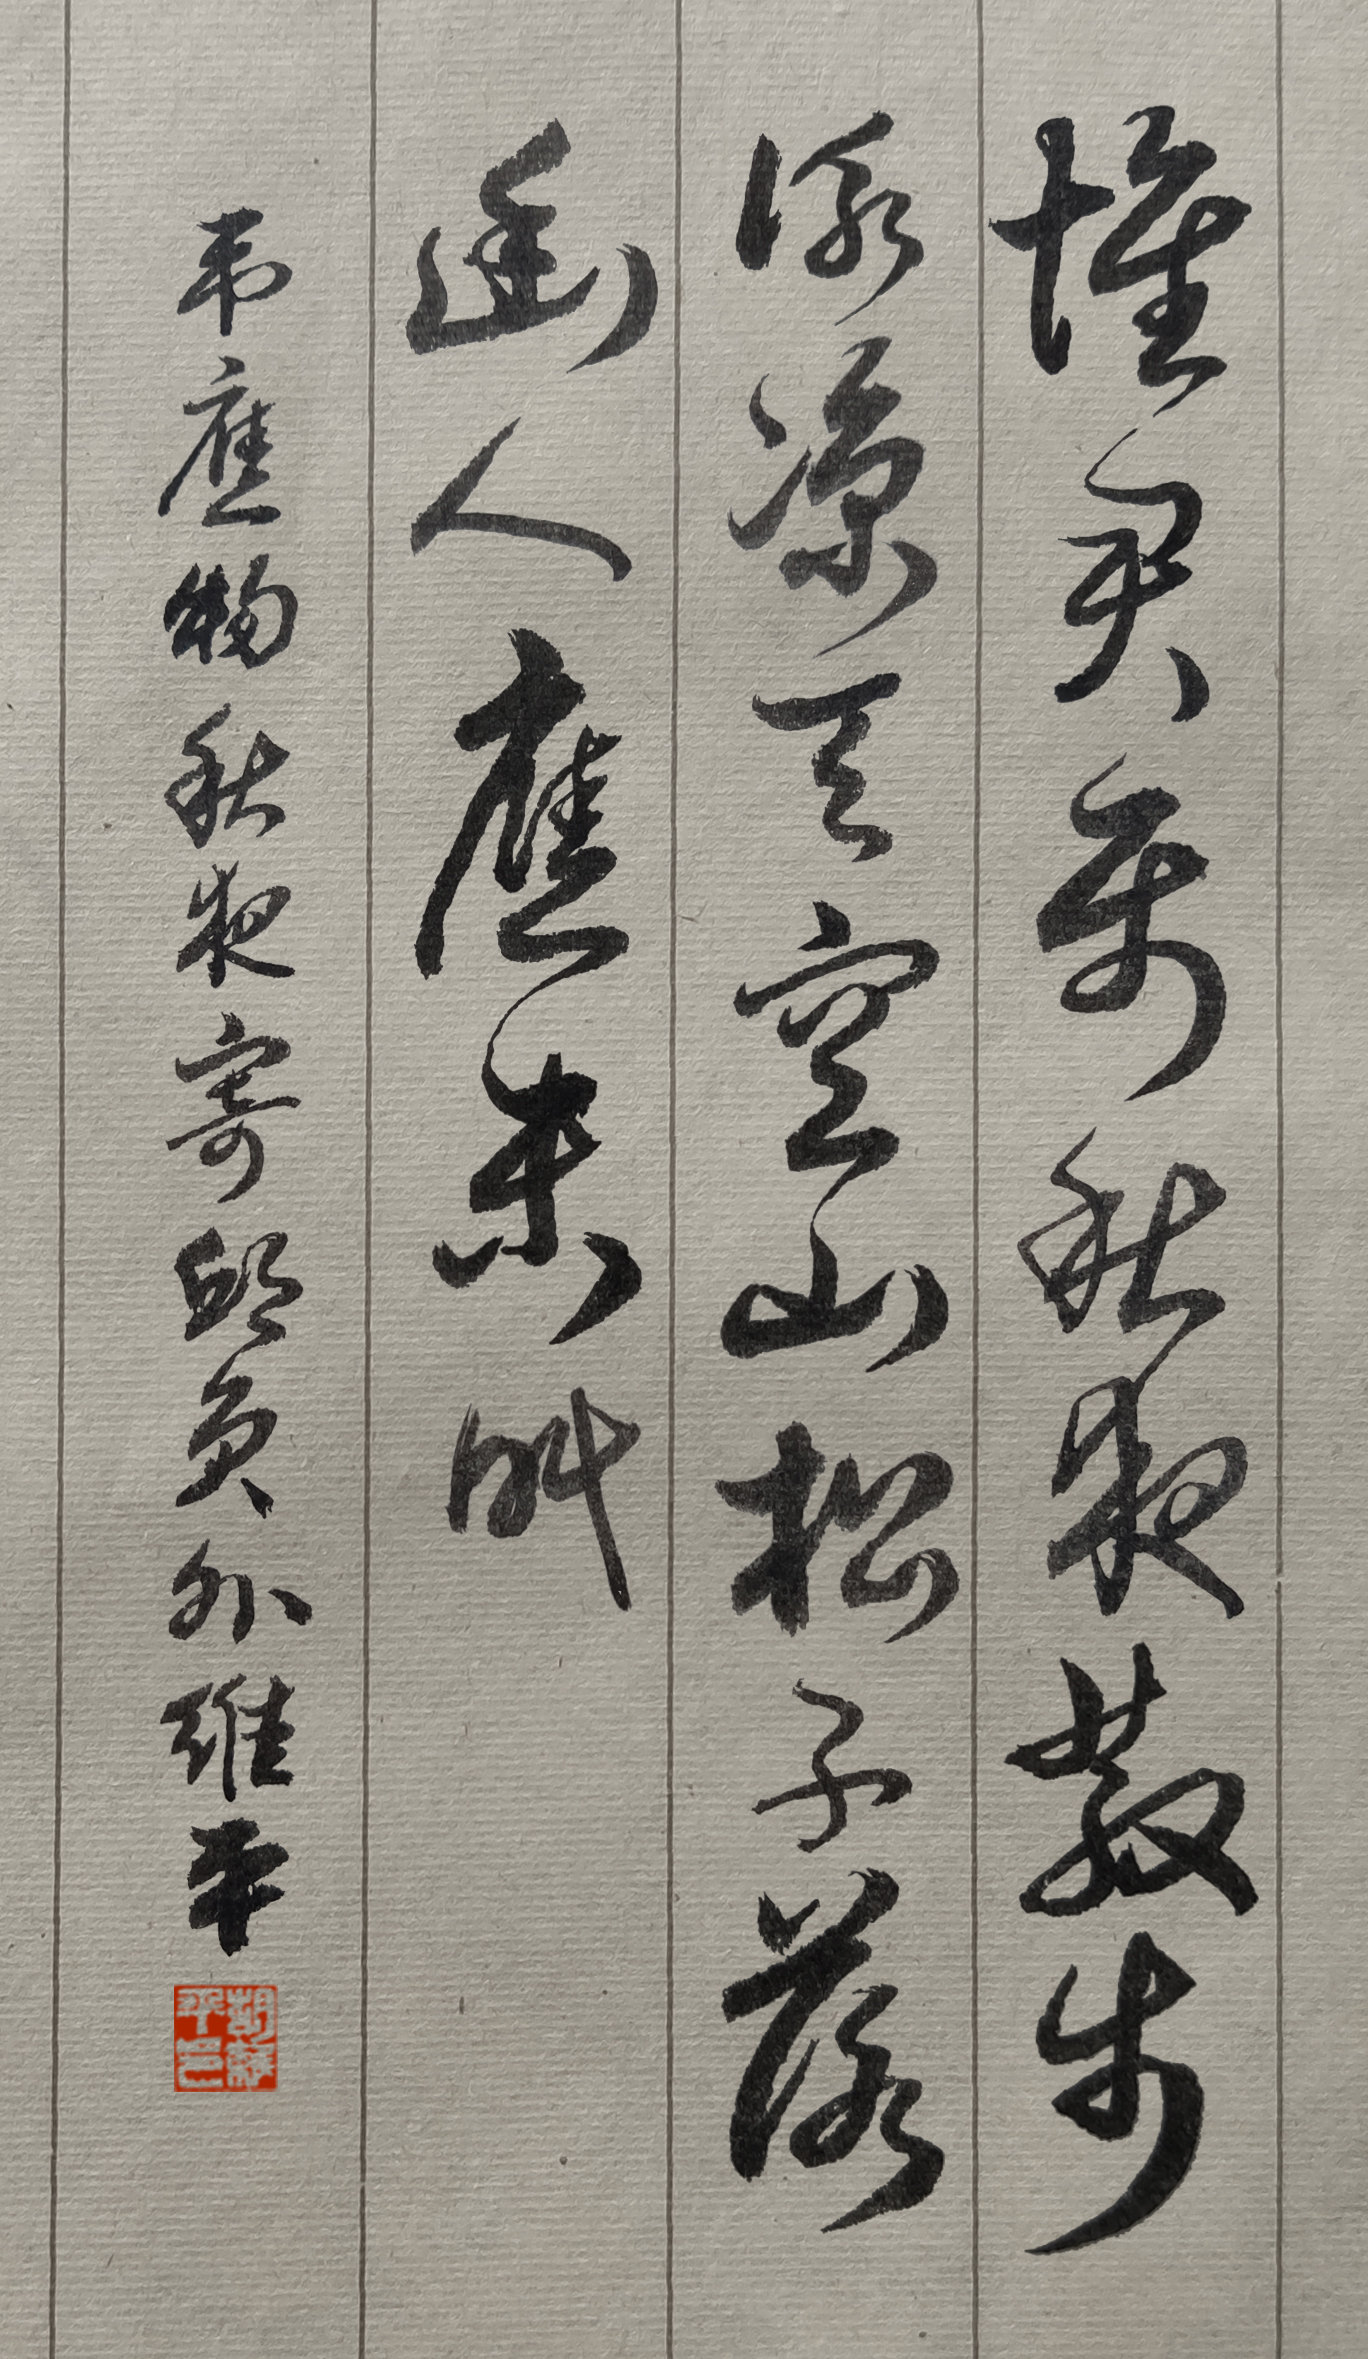 懷君屬秋夜散步
詠涼天空山松子落
幽人應未眠
韋應物秋夜寄邱員外維平
胡維平印